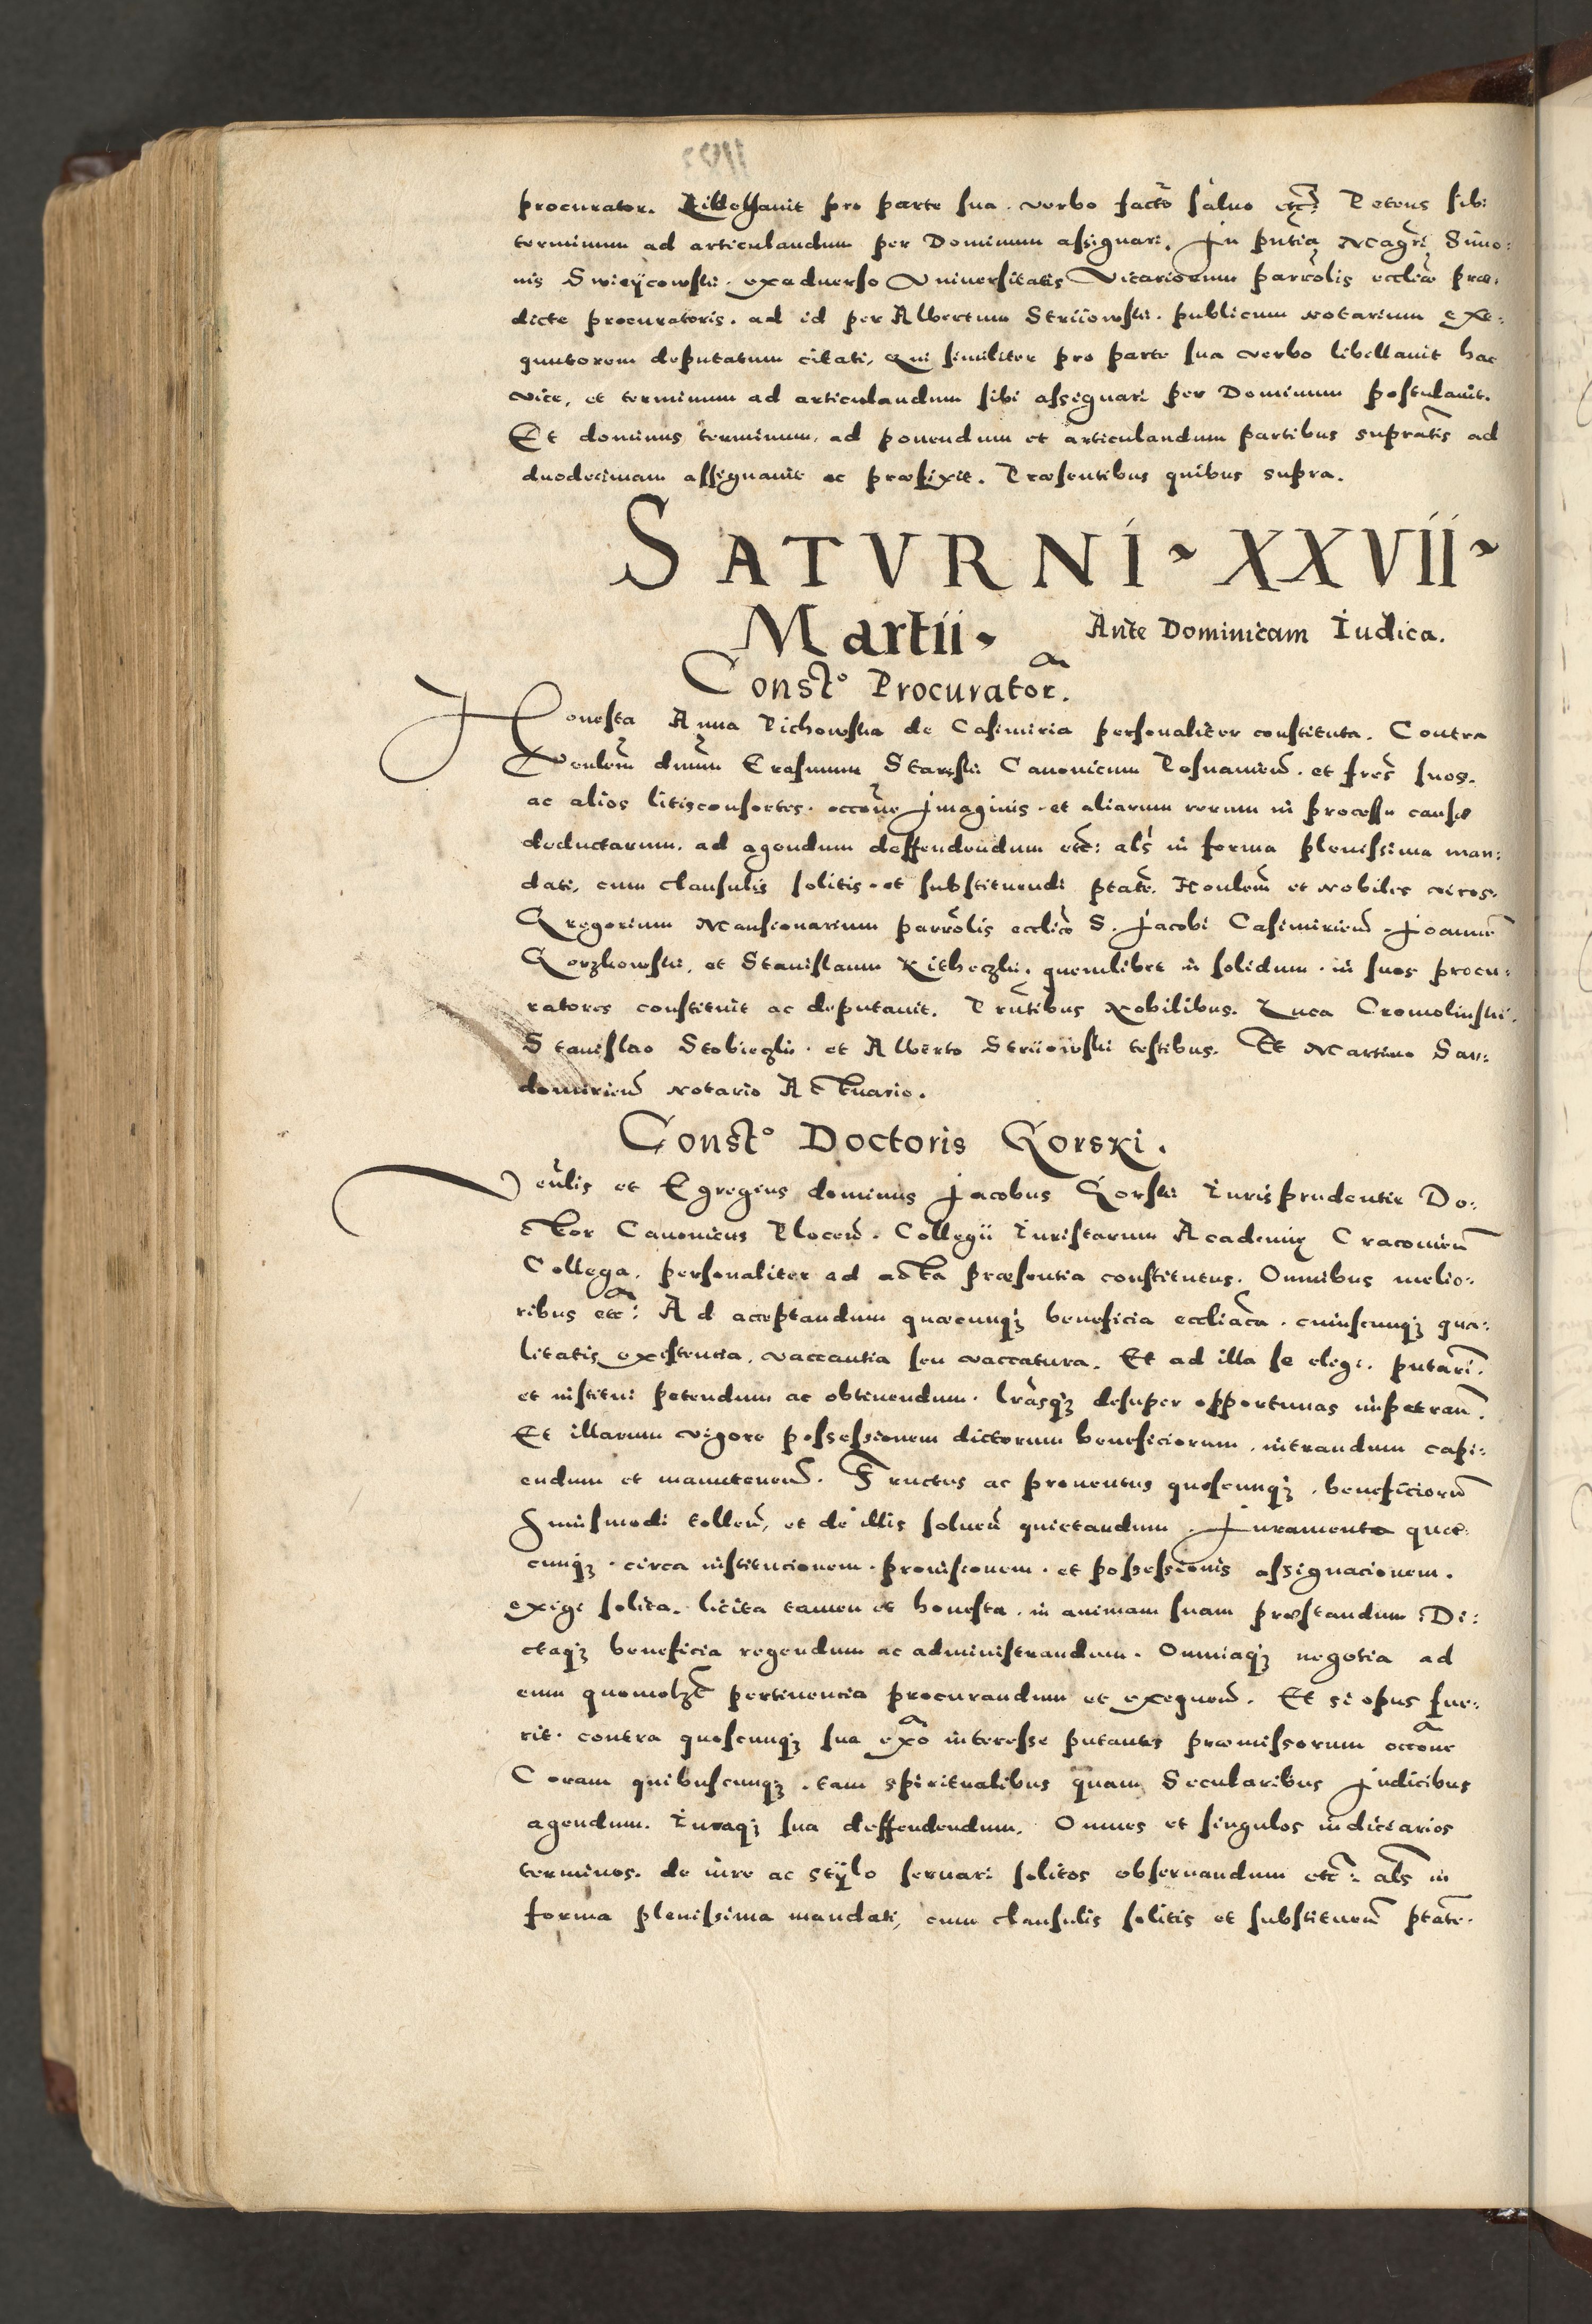 procurator. Libellavit pro parte sua. verbo facto salvo etc: Petens sibi
terminum ad articulandum per Dominum assignari. In pñtia Magri Simo:
nis Swieÿcowski. exadverso Vniversitatis Vicariorum parrolis ecclie præ:
dicte procuratoris. ad id per Albertum Striiowski. publicum notarium exe:
quutorem deputatum citati, Qui similiter pro parte sua verbo libellavit hac
vice, et terminum ad articulandum sibi assignari per Dominum postulavit.
Et dominus terminum, ad ponendum et articulandum partibus supratis ad
duodecimam assignavit ac præfixit. Præsentibus quibus supra.
SATVRNI ~ XXVII ~
Martii ~ Ante Dominicam Iudica.
Constº Procurator.
Honesta Anna Pichowska de Casimiria personaliter constituta. Contra
Venlem dnum Erasmum Starski Canonicum Posnanien. et fres suos.
ac alios litisconsortes. occone Imaginis. et aliarum rerum in processu causæ
deductarum. ad agendum deffendendum etc: als in forma plenissima man:
dati, cum clausulis solitis. et substituendi ptate. Honlem et nobiles viros.
Gregorium Mansionarium parrolis ecclie S. Jacobi Casimirien. Joannē
Gorzkowski, et Stanislaum Kitheczki. quemlibet in solidum. in suos procu:
ratores constituit ac deputavit. Prntibus Nobilibus. Luca Cromolinski.
Stanislao Stobieczki. et Alberto Striiowski testibus. Et Martino San:
domirien notario Actuario.
Constº Doctoris Gorski.
Venlis et Egregius dominus Jacobus Gorski Iurisprudentie Do:
ctor Canonicus Plocen. Collegii Iuristarum Academię Cracovien
Collega. personaliter ad acta præsentia constitutus. Omnibus melio:
ribus etc: Ad acceptandum quæcunqȝ beneficia eccliaca. cuiuscunqȝ qua:
litatis existentia. vaccantia seu vaccatura. Et ad illa se elegi. pntari.
et institui petendum ac obtinendum. lrasqȝ desuper opportunas impetran.
Et illarum vigore possessionem dictorum beneficiorum. intrandum capi:
endum et manutenen. Fructus ac proventus quoscunqȝ. beneficiorū
Huiusmodi tollen, et de illis solven quietandum. Juramenta que:
cunqȝ. circa institucionem. provisionem. et possessionis assignacionem.
exigi solita. licita tamen et honesta. in animam suam præstandum. Di:
ctaqȝ beneficia regendum ac administrandum. Omniaqȝ negotia ad
eum quomolȝt pertinencia procurandum et exequen. Et si opus fue:
rit. contra quoscunqȝ sua exo interesse putantes præmissorum occone
Coram quibuscunqȝ. tam spiritualibus quam Secularibus Judicibus
agendum. Iuraqȝ sua deffendendum. Omnes et singulos iudiciarios
terminos. de iure ac stÿlo servari solitos observandum etc: als in
forma plenissima mandati, cum clausulis solitis et substituen ptate.